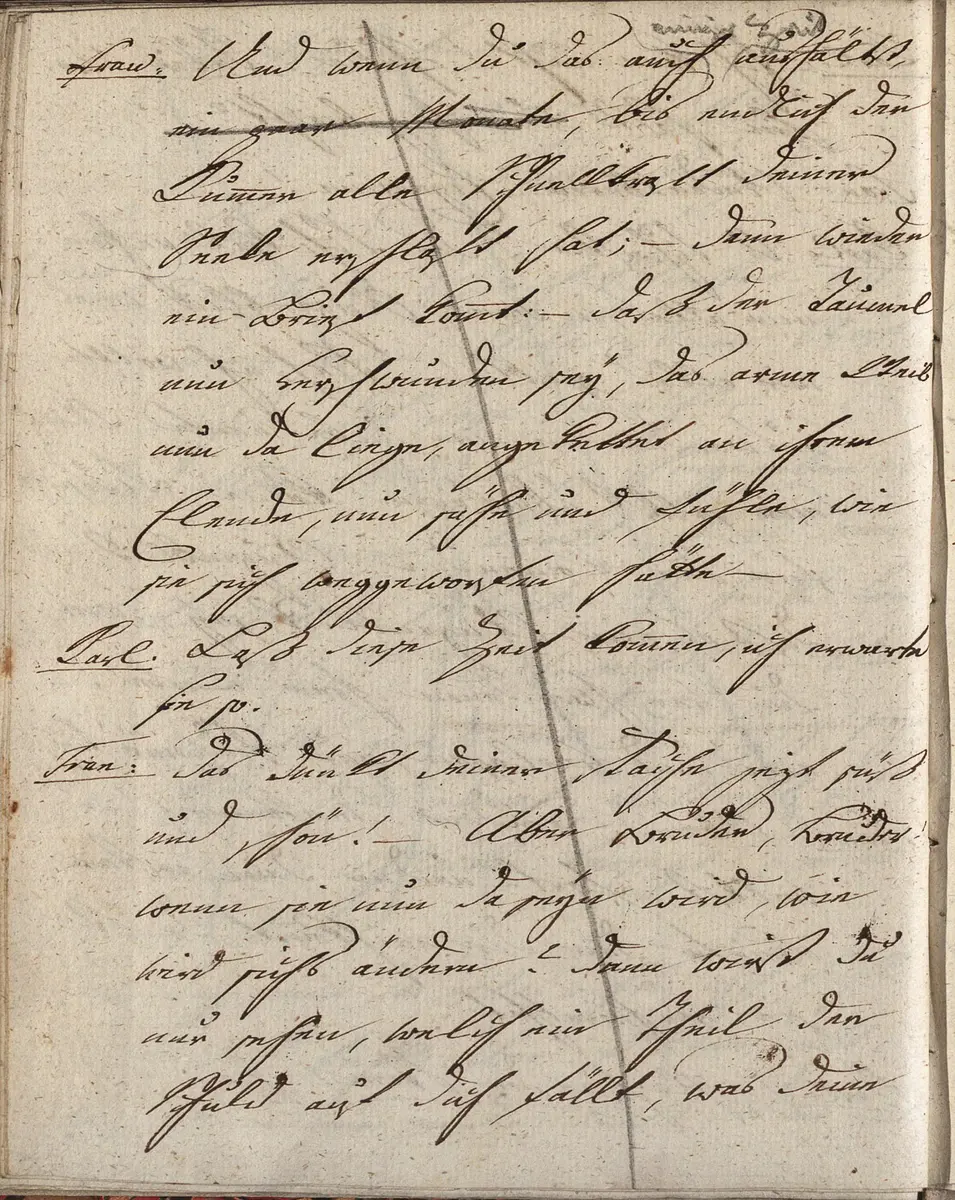 Frau: Und wenn du das auch aushältst,
ein paar Monate, bis endlich der
Kummer alle Schnellkraft deiner
Seele erschlafft hat; – dann wieder
ein Brief kommt: – daß der Taumel
nun verschwunden sey, das arme Weib
nun da liege, angekettet an ihrem
Elende, nun sähe und fühle, wie
sie sich weggeworfen hätte –
Karl. Laß diese Zeit kommen, ich erwarte
sie so.
Frau: Das dünkt deiner Rache jezt süß
und schön! – Aber Bruder, Bruder!
wenn sie nun da seyn wird, wie
wird sichs ändern? dann wirst du
nur sehen, welch ein Theil der
Schuld auf dich fällt, was deine